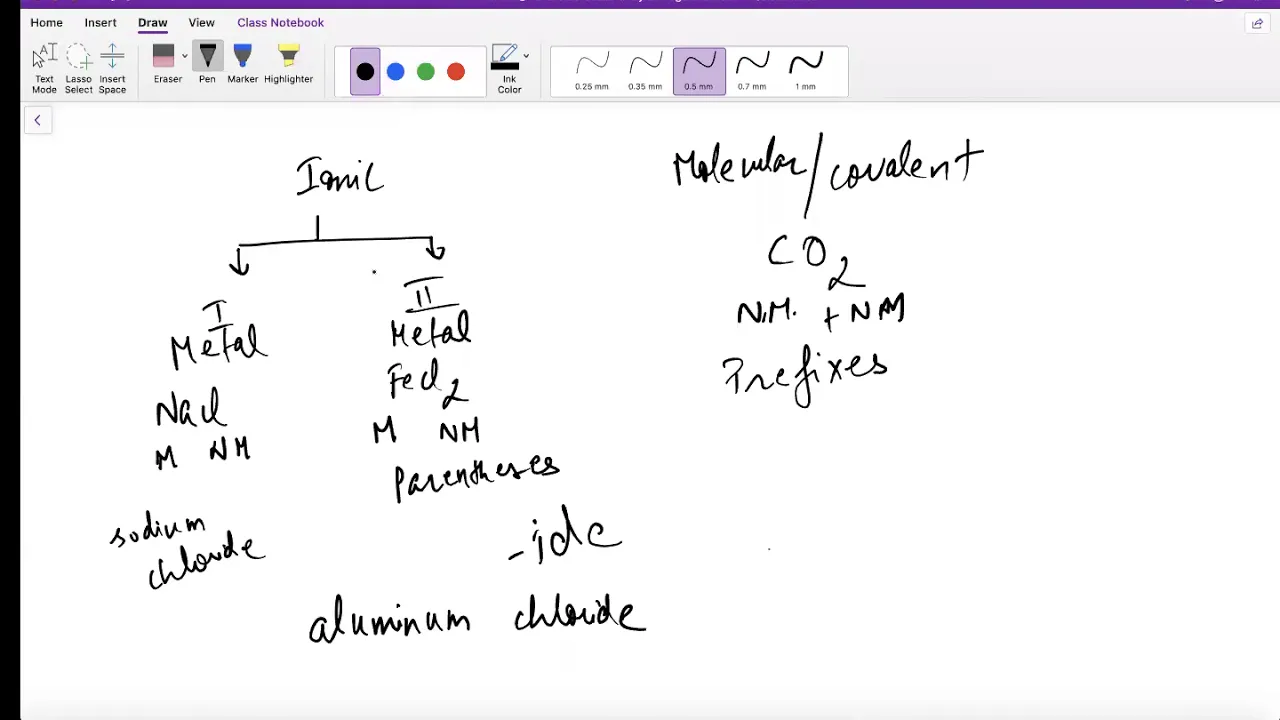 Home Insert Draw View Class Notebook
Text Mode Lasso Select Insert Space Eraser Pen Marker Highlighter Ink Color 0.25 mm 0.35 mm 0.5 mm 0.7 mm 1 mm
Ionic
I
Metal
NaCl
M NM
sodium
chloride
II
Metal
FeCl2
M NM
Parentheses
-ide
aluminum chloride
Molecular/covalent
CO2
N.M. + NM
Prefixes